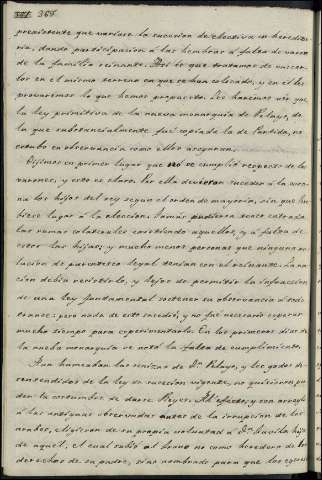 368.
preexistente que variase la sucesion de electiva en heredita-
ria, dando participacion á las hembras á falta de varon
de la familia reinante. Por lo que tratamos de vencer-
los en el mismo terreno en que se han colocado, y en él les
probaremos lo que hemos propuesto. Les haremos ver que
la ley primitiva de la nueva monarquia de Pelayo, de
la que substancialmente fué copiada la de Partida, no
estubo en observancia como ellos aseguran.
Dijimos en primer lugar que no se cumplió respecto de los
varones, y esto es claro. Por ella debieran suceder á la coro-
na los hijos del rey segun el orden de mayoria, sin que hu-
biese lugar á la eleccion. Jamás pudieran tener entrada
las ramas colaterales existiendo aquellos, y á falta de
estos las hijas; y mucho menos personas que ninguna re-
lacion de parentesco legal tenian con el reinante. La na-
cion debia resistirlo, y lejos de permitir la infraccion
de una ley fundamental sostener su observancia á todo
trance: pero nada de esto sucedió, y no fué necesario esperar
mucho tiempo para esperimentarlo. En los primeros dias de
la nueba monarquia se notó la falta de cumplimiento.
Aun humeaban las cenizas de Dn. Pelayo, y los godos de-
sentendidos de la ley de sucesion vigente, no quisieron per-
der la costumbre de darse Reyes. Al efecto, y con arreglo
á las antiguas observadas antes de la irrupcion de los
arabes, eligieron de su propia voluntad á Dn. Favila hijo
de aquél, el cual subió al trono no como heredero de los
derechos de su padre, sino nombrado para que los ejerci-